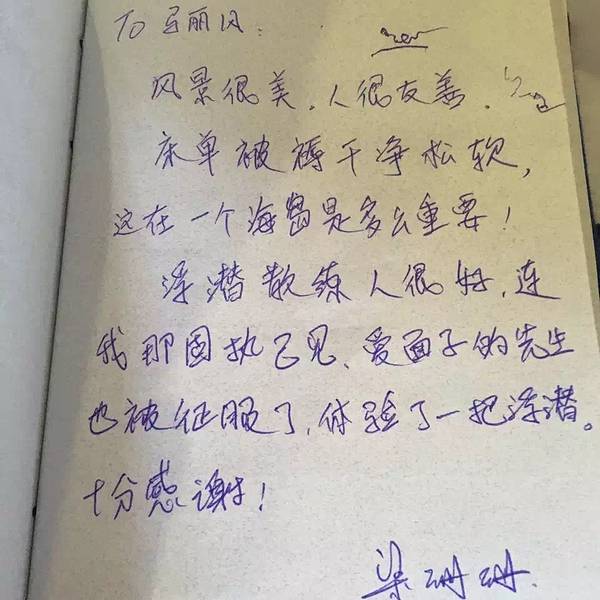 To 马丽风:
风景很美.人很友善.
床单被褥干净松软,
这在一个海岛是多么重要!
浮潜教练人很好,连
我那固执己见、爱面子的先生
也被征服了,体验了一把浮潜。
十分感谢!
梁珊珊.